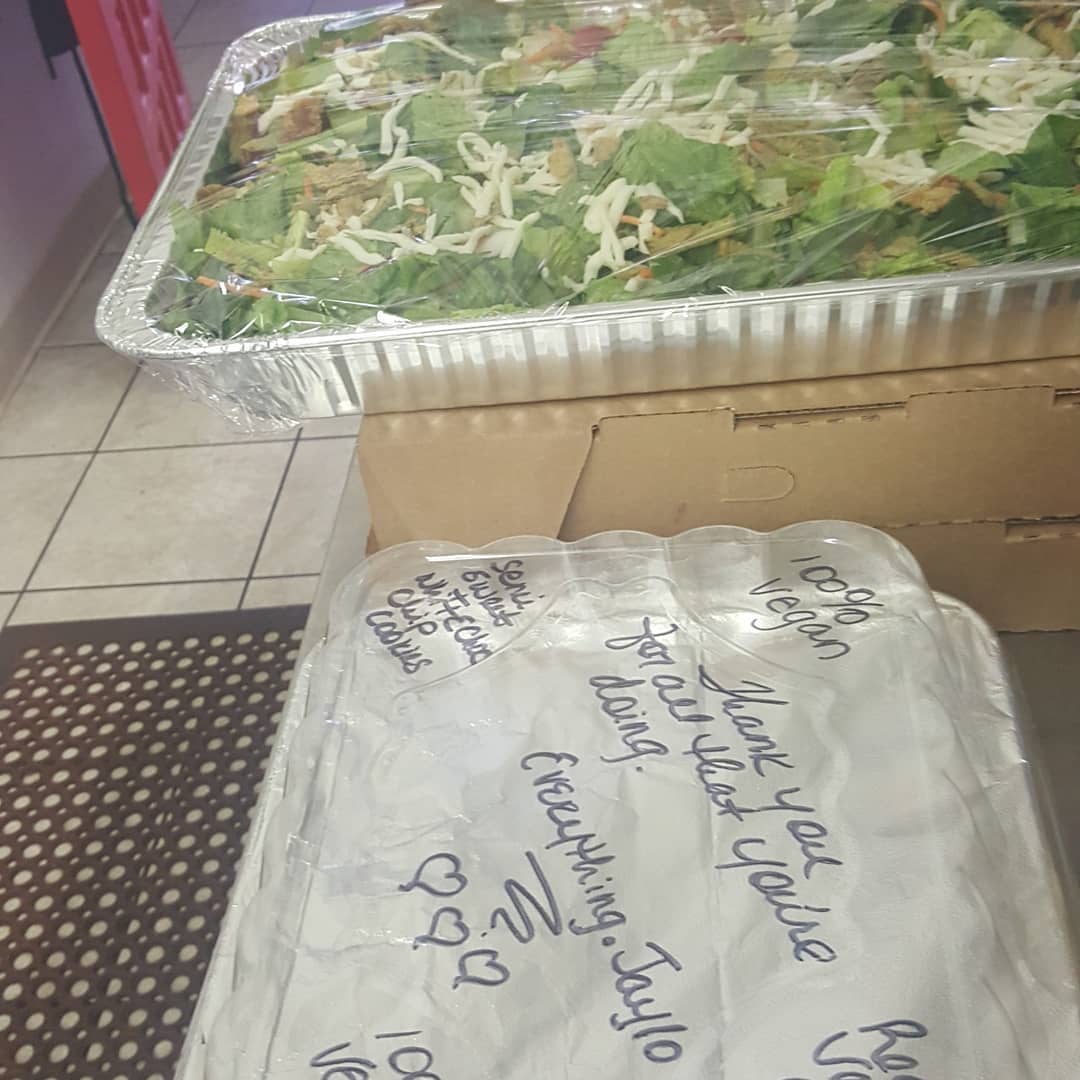 Semi
Sweet
WhiTE Choc
Chip
Cookies
100%
Vegan
Thank you
for all that you're
doing.
EvERything. Jayllo
100
Ve